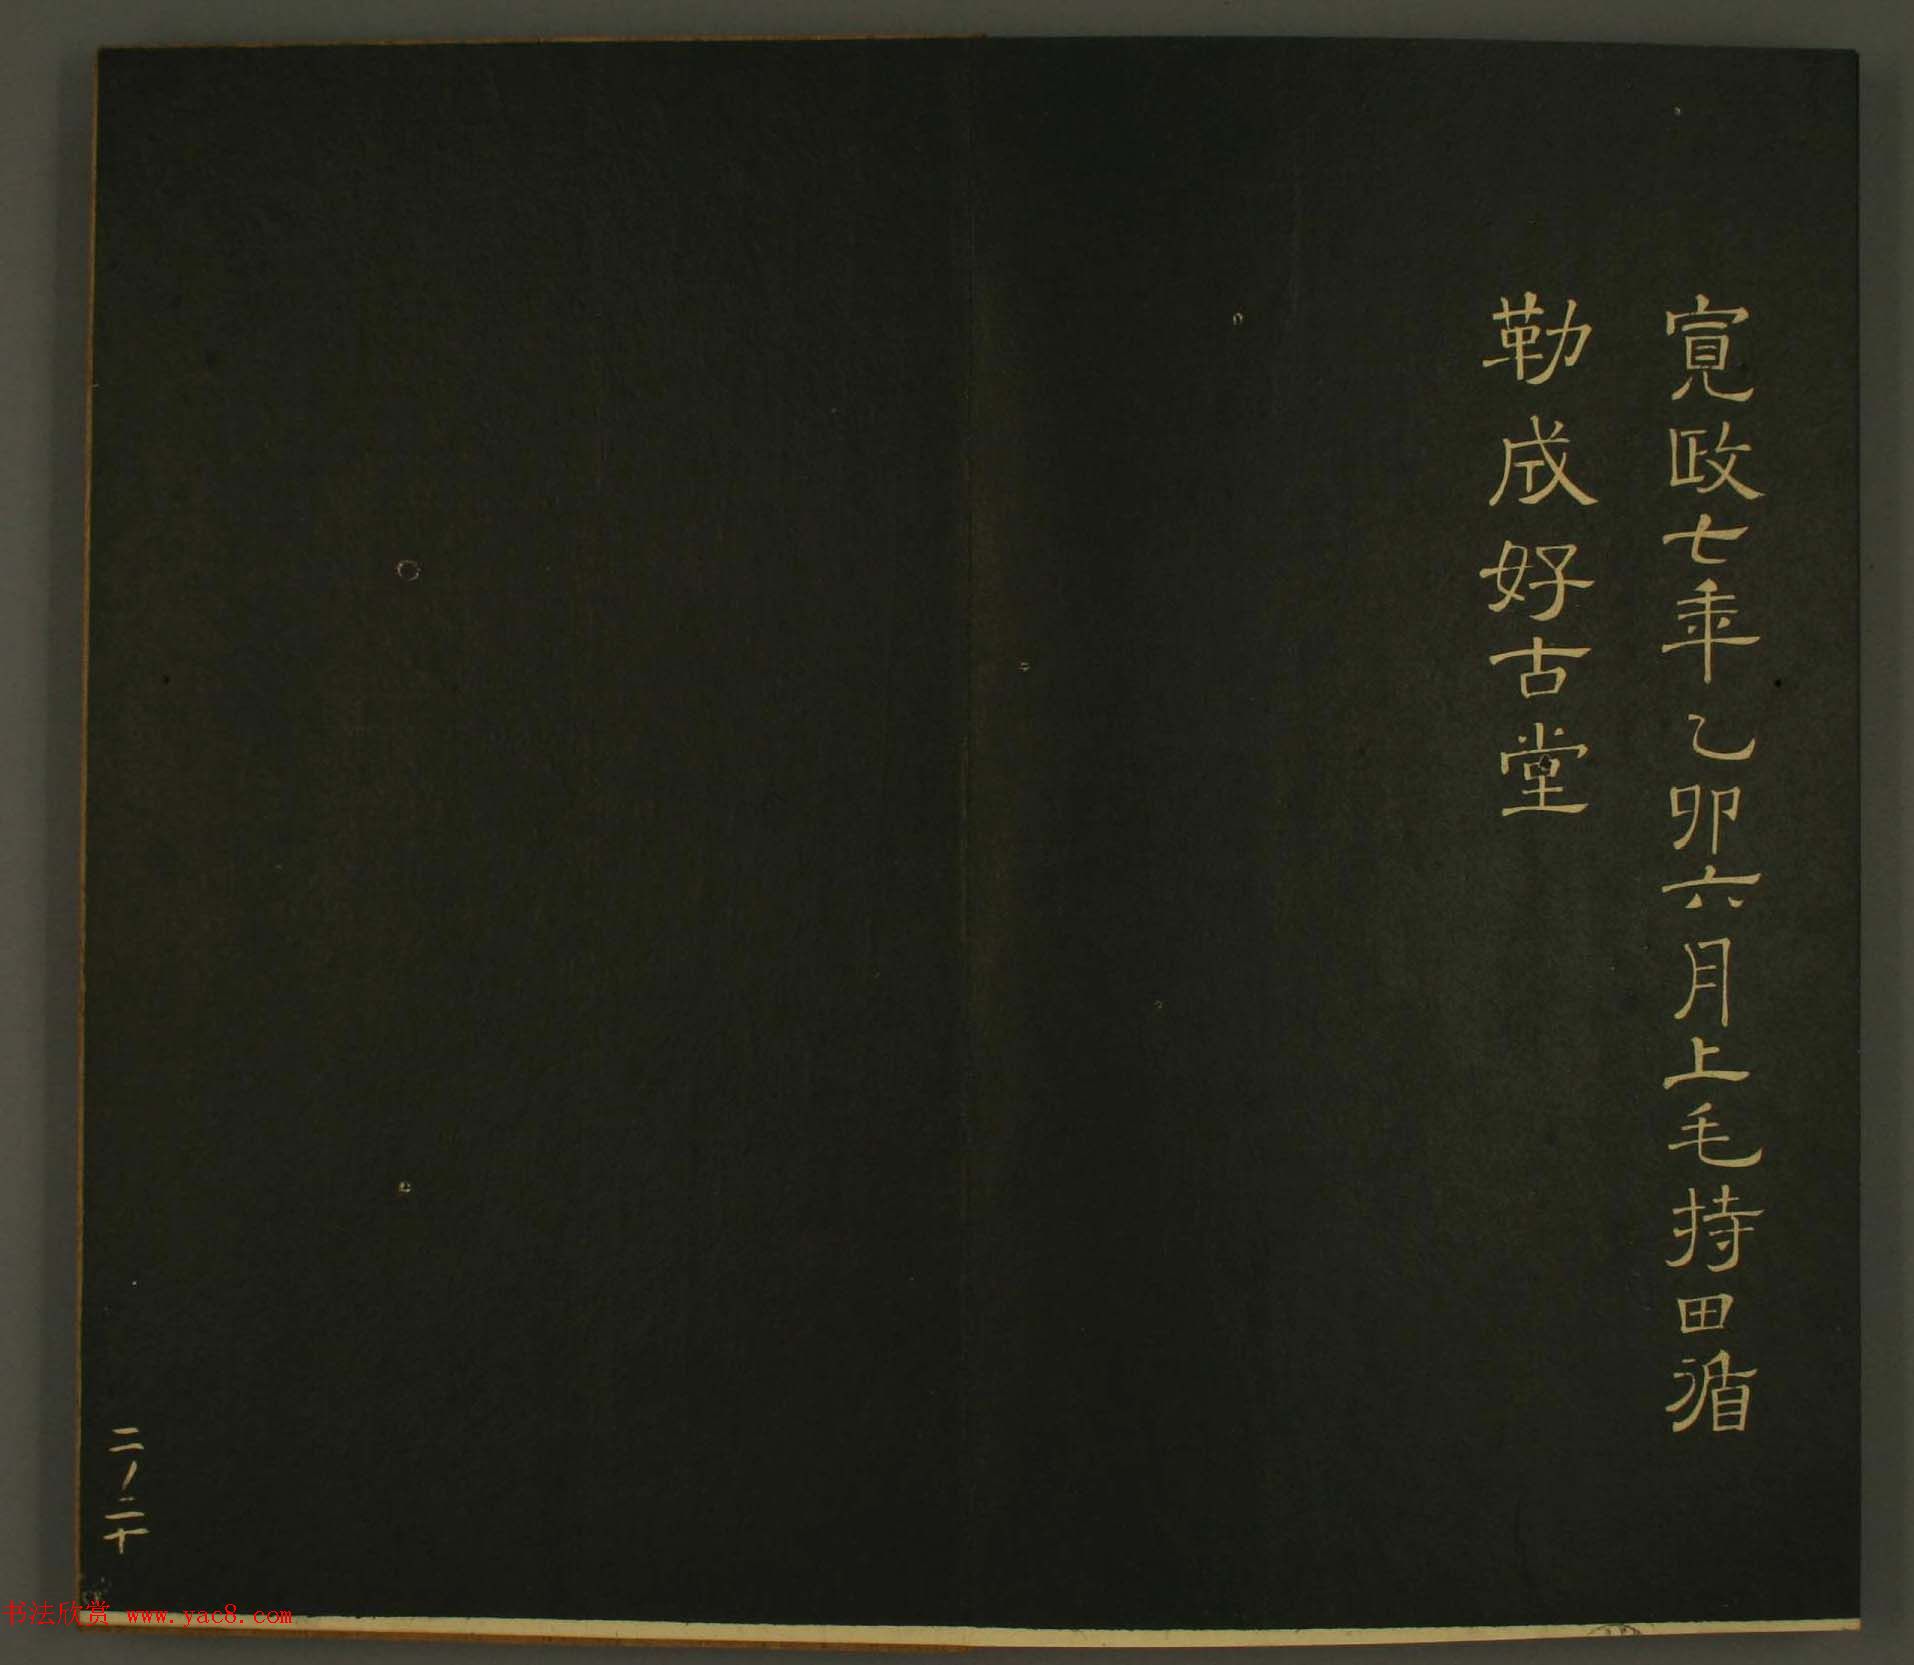 寛政七年乙卯六月上毛持田循
勒成好古堂
二ノ二十
书法欣赏 www.yac8.com